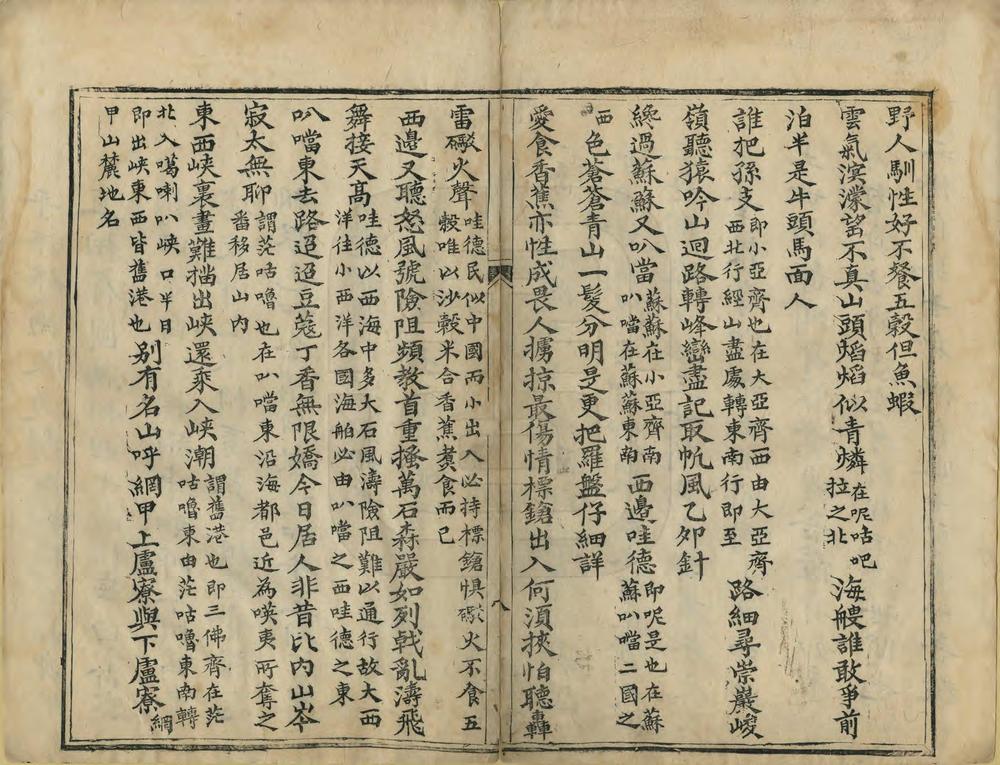 野人馴性好不餐五穀但魚蝦
雲氣溟濛望不真山頭熖熖似青燐在呢咕吧拉之北海艘誰敢爭前
泊半是牛頭馬面人
誰把孫支即小亞齊也在大亞齊西由大亞齊西北行經山盡處轉東南行即至路細尋崇巖峻
嶺聽猿吟山迴路轉峰巒盡記取帆風乙夘針
纔過蘇蘇又叭當蘇蘇在小亞齊南叭噹在蘇蘇東南西邊哇德即呢是也在蘇蘇叭噹二國之西
色蒼蒼青山一髮分明是更把羅盤仔細詳
愛食香蕉亦性成畏人擄掠最傷情標鎗出入何須挾怕聽轟
雷礮火聲哇德民似中國而小出入必持標鎗惧礮火不食五穀唯以沙穀米合香蕉煑食而已
西邊又聽怒風號險阻頻教首重搔萬石森嚴如列戟亂濤飛
舞接天高哇德以西海中多大石風濤險阻難以通行故大西洋徃小西洋各國海舶必由叭噹之西哇德之東
叭噹東去路迢迢豆蔻丁香無限嬌今日居人非昔比內山岑
寂太無聊謂茫咕嚕也在叭噹東沿海都邑近為暎夷所奪之番移居山內
東西峽裏畫難描出峽還乘入峽潮謂舊港也即三佛齊在茫咕嚕東由茫咕嚕東南轉
北入噶喇叭峽口半日即出峽東西皆舊港也別有名山呼網甲上廬寮與下廬寮網
甲山麓地名
八